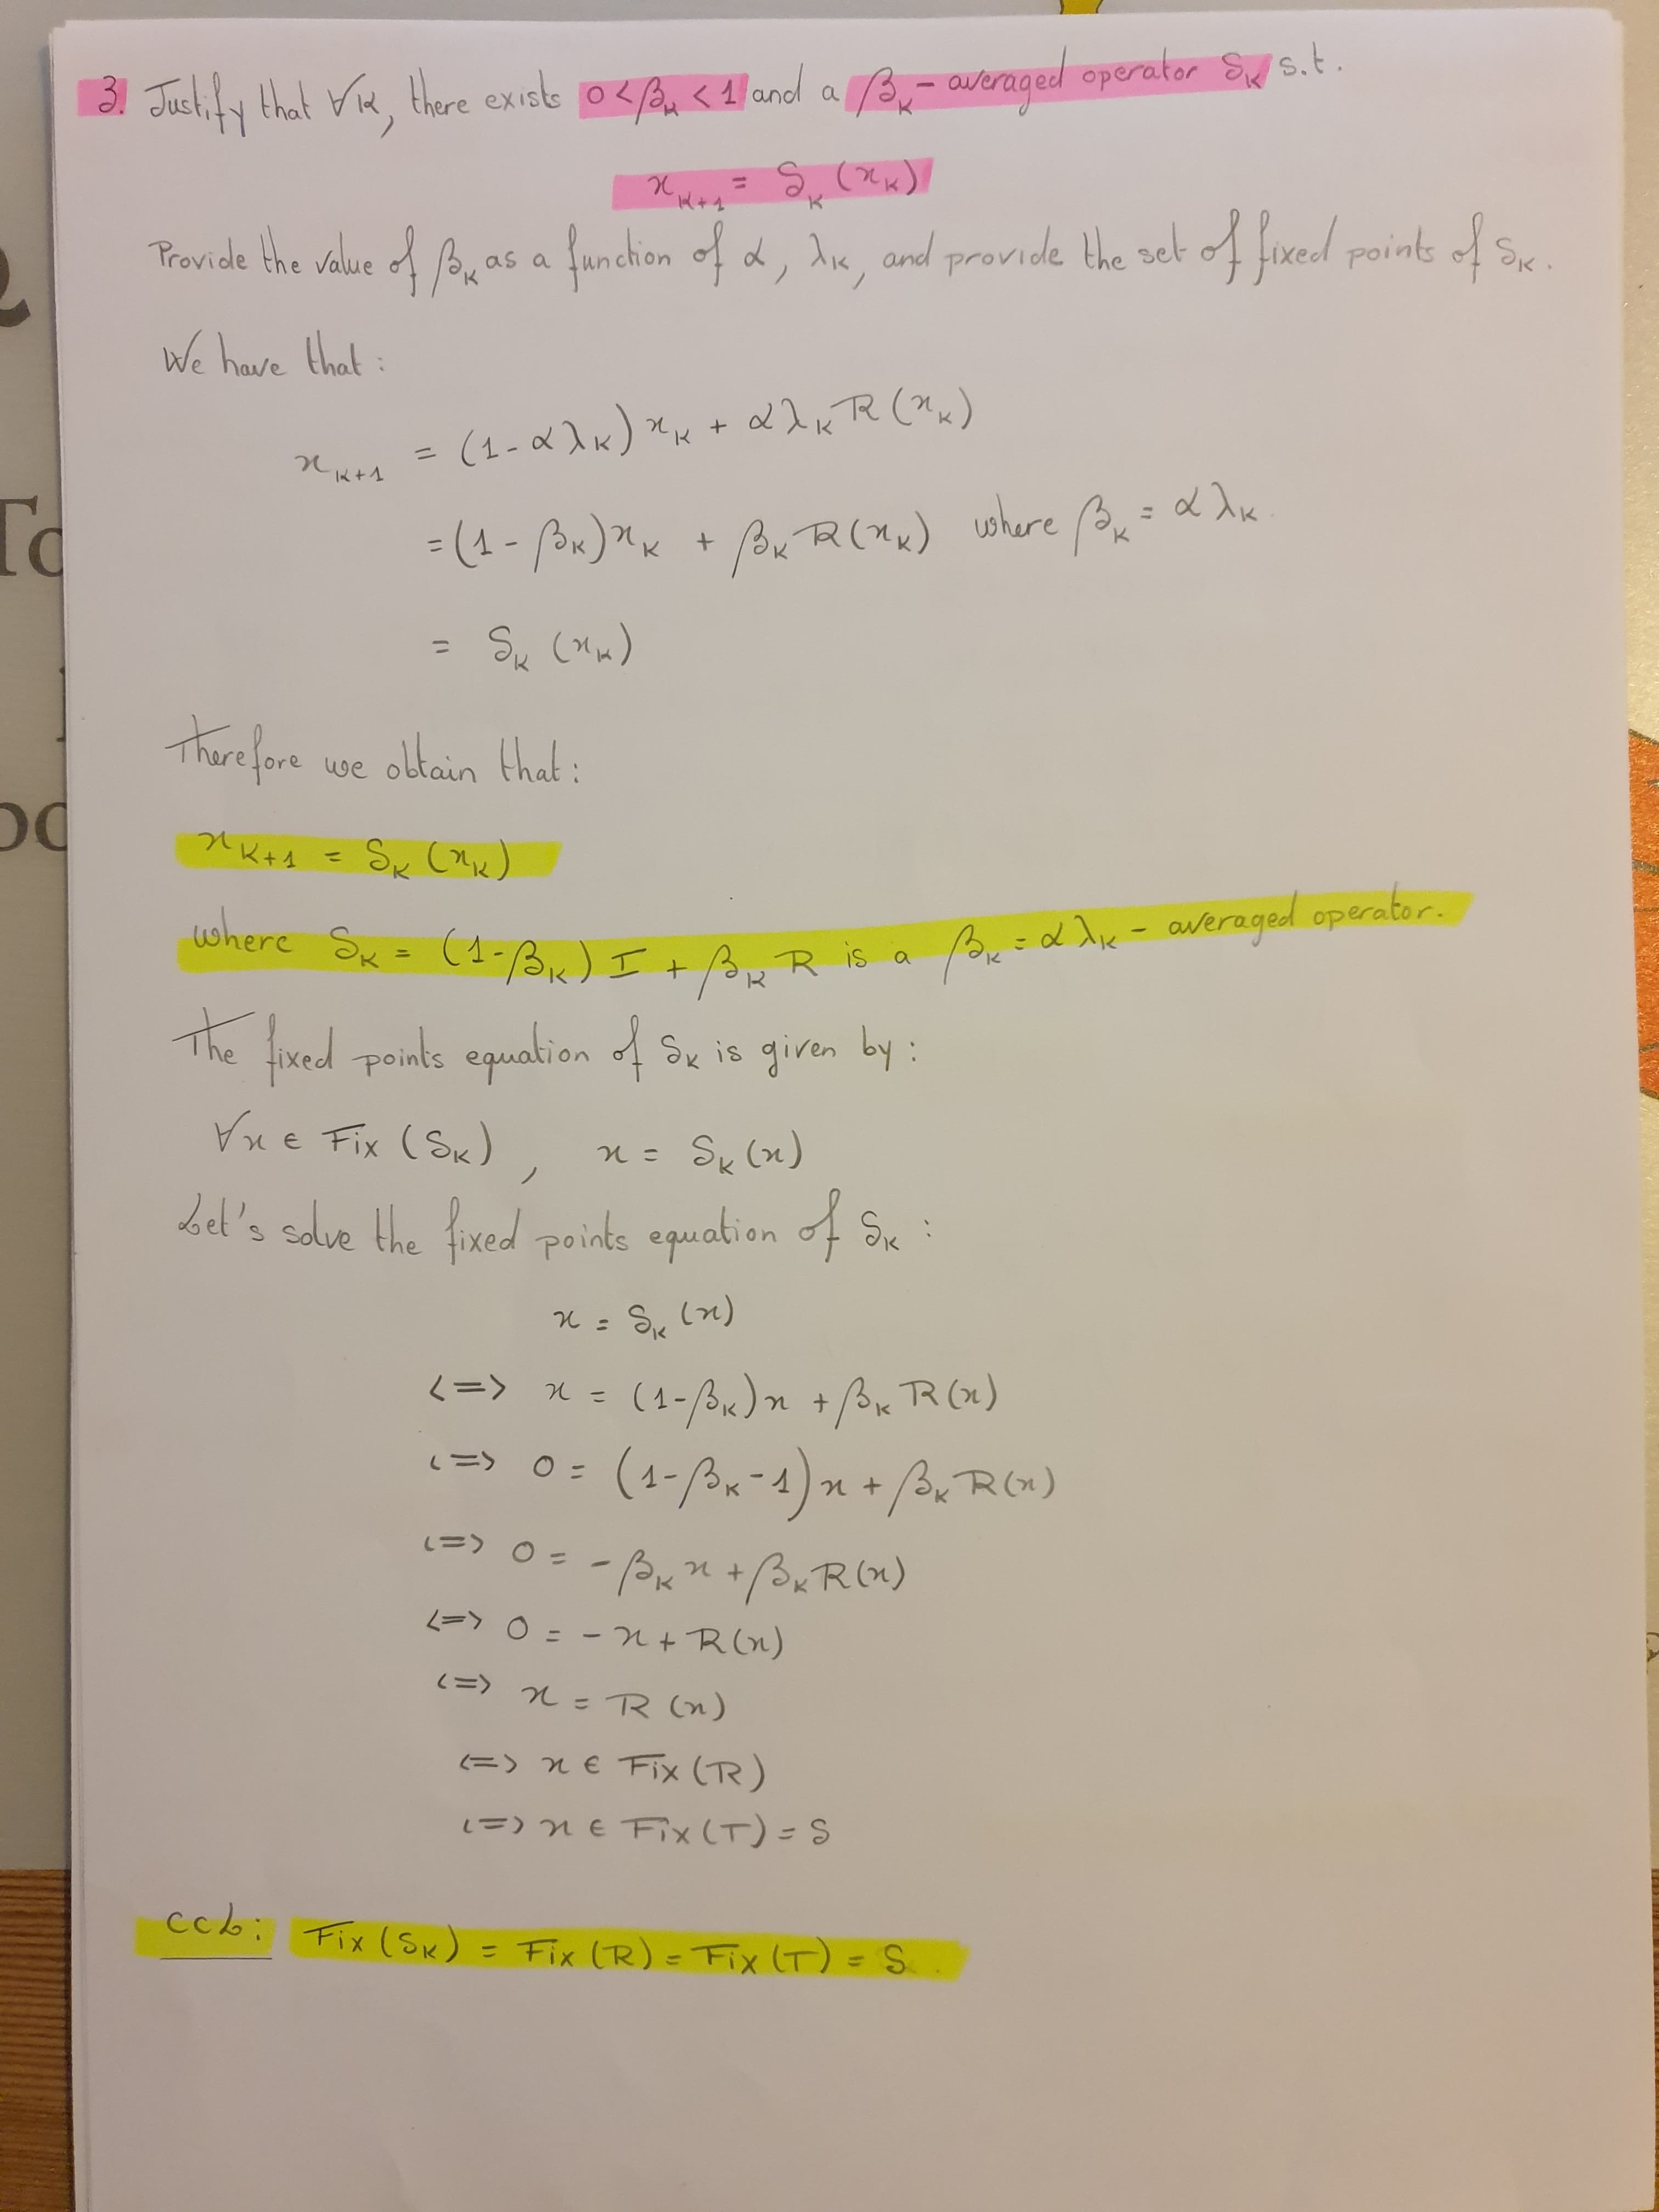 3. Justify that ∀K, there exists 0 < β_K < 1 and a β_K - averaged operator S_K s.t.
x_{K+1} = S_K (x_K)
Provide the value of β_K as a function of α, λ_K, and provide the set of fixed points of S_K.
We have that:
x_{K+1} = (1 - αλ_K) x_K + αλ_K R(x_K)
= (1 - β_K) x_K + β_K R(x_K) where β_K = αλ_K.
= S_K (x_K)
Therefore we obtain that:
x_{K+1} = S_K (x_K)
where S_K = (1-β_K) I + β_K R is a β_K = αλ_K - averaged operator.
The fixed points equation of S_K is given by:
∀x ∈ Fix (S_K), x = S_K (x)
Let's solve the fixed points equation of S_K:
x = S_K (x)
<=> x = (1-β_K)x + β_K R(x)
<=> 0 = (1-β_K-1)x + β_K R(x)
<=> 0 = -β_K x + β_K R(x)
<=> 0 = - x + R(x)
<=> x = R (x)
<=> x ∈ Fix (R)
<=> x ∈ Fix (T) = S
CCL: Fix (S_K) = Fix (R) = Fix (T) = S.
To